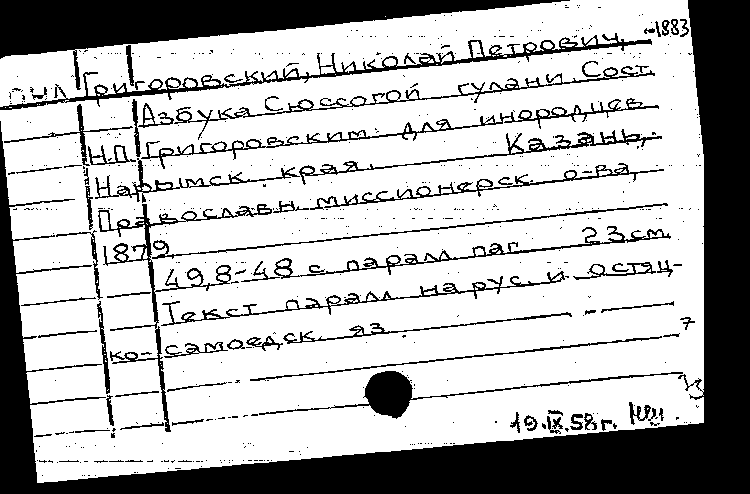 Григоровский, Николай Петрович, -1883
Азбука Сюссогой гулани. Сост.
Н.П. Григоровским для инородцев
Нарымск. края. Казань,
Православн. миссионерск. о-ва,
1879
49,8-48 с паралл паг 23см.
Текст паралл на рус. и остяц-
ко- самоедск. яз.
7
19.IX.58г.